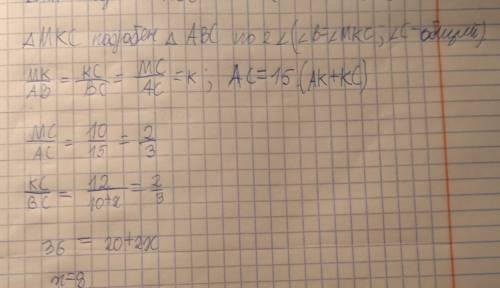 △MKC подобен △ABC по 2∠(∠B=∠MKC; ∠C-общий)
MK/AB = KC/BC = MC/AC = K; AC=15 (AK+KC)
MC/AC = 10/15 = 2/3
KC/BC = 12/10+x = 2/3
36 = 20+2x
x=8